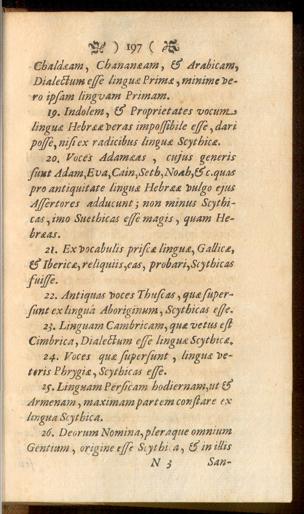 ) 197 (
Chaldæam, Chananæam, & Arabicam,
Dialectum esse linguæ Primæ, minime ve-
ro ipsam lingvam Primam.
19. Indolem, & Proprietates vocum
linguæ Hebrææ veras impossibile esse, dari
posse, nisi ex radicibus linguæ Scythicæ.
20. Voces Adamæas, cujus generis
sunt Adam, Eva, Cain, Seth, Noah, &c. quas
pro antiquitate linguæ Hebrææ vulgo ejus
Assertores adducunt; non minus Scythi-
cas, imo Suethicas esse magis, quam He-
bræas.
21. Ex vocabulis priscæ linguæ, Gallicæ,
& Ibericæ, reliquiis, eas, probari, Scythicas
fuisse.
22. Antiquas voces Thuscas, quæ super-
sunt ex lingua Aboriginum, Scythicas esse.
23. Linguam Cambricam, quæ vetus est
Cimbrica, Dialectum esse linguæ Scythicæ.
24. Voces quæ supersunt, linguæ ve-
teris Phrygiæ, Scythicas esse.
25. Linguam Persicam hodiernam, ut &
Armenam, maximam partem constare ex
lingua Scythica.
26. Deorum Nomina, pleraque omnium
Gentium, origine esse Scythica, & in illis
N 3 San-